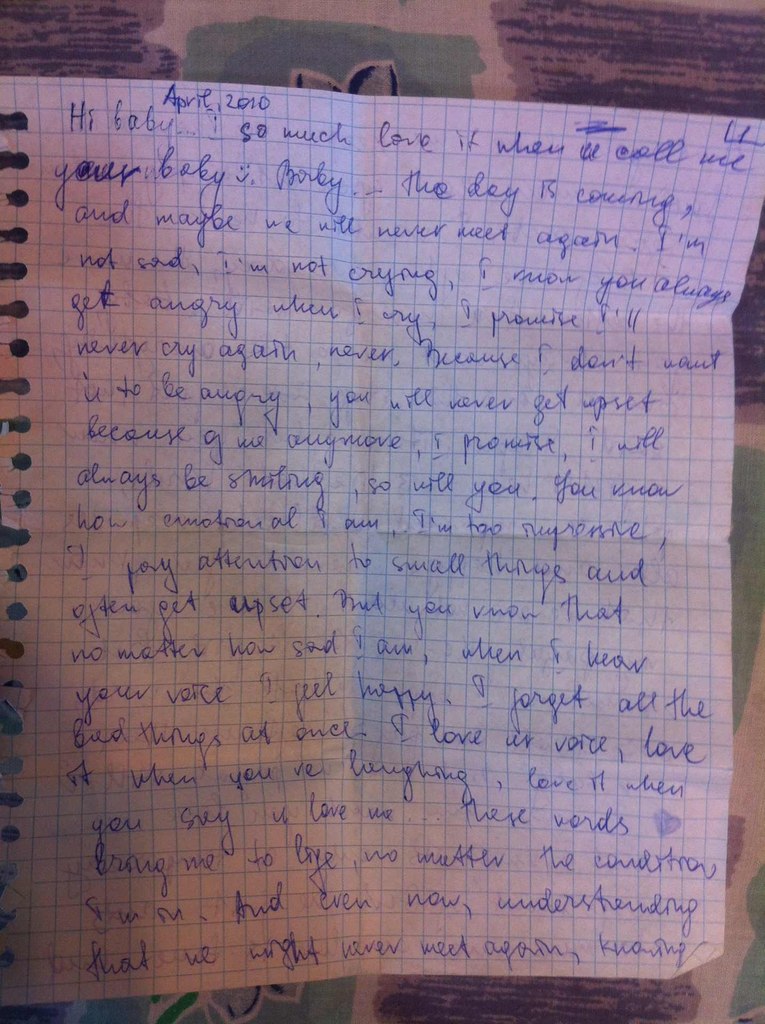 April, 2010
Hi baby... I so much love it when u call me
your baby :). Baby... the day is coming,
and maybe we will never meet again. I'm
not sad, I'm not crying, I know you always
get angry when I cry, I promise I'll
never cry again, never. Because I don't want
u to be angry, you will never get upset
because of me anymore, I promise, I will
always be smiling, so will you. You know
how emotional I am, I'm too impressive,
I pay attention to small things and
often get upset. But you know that
no matter how sad I am, when I hear
your voice I feel happy. I forget all the
bad things at once. I love ur voice, love
it when you're laughing, love it when
you say u love me... these words
bring me to life, no matter the condition
I'm in. And even now, understanding
that we might never meet again, knowing